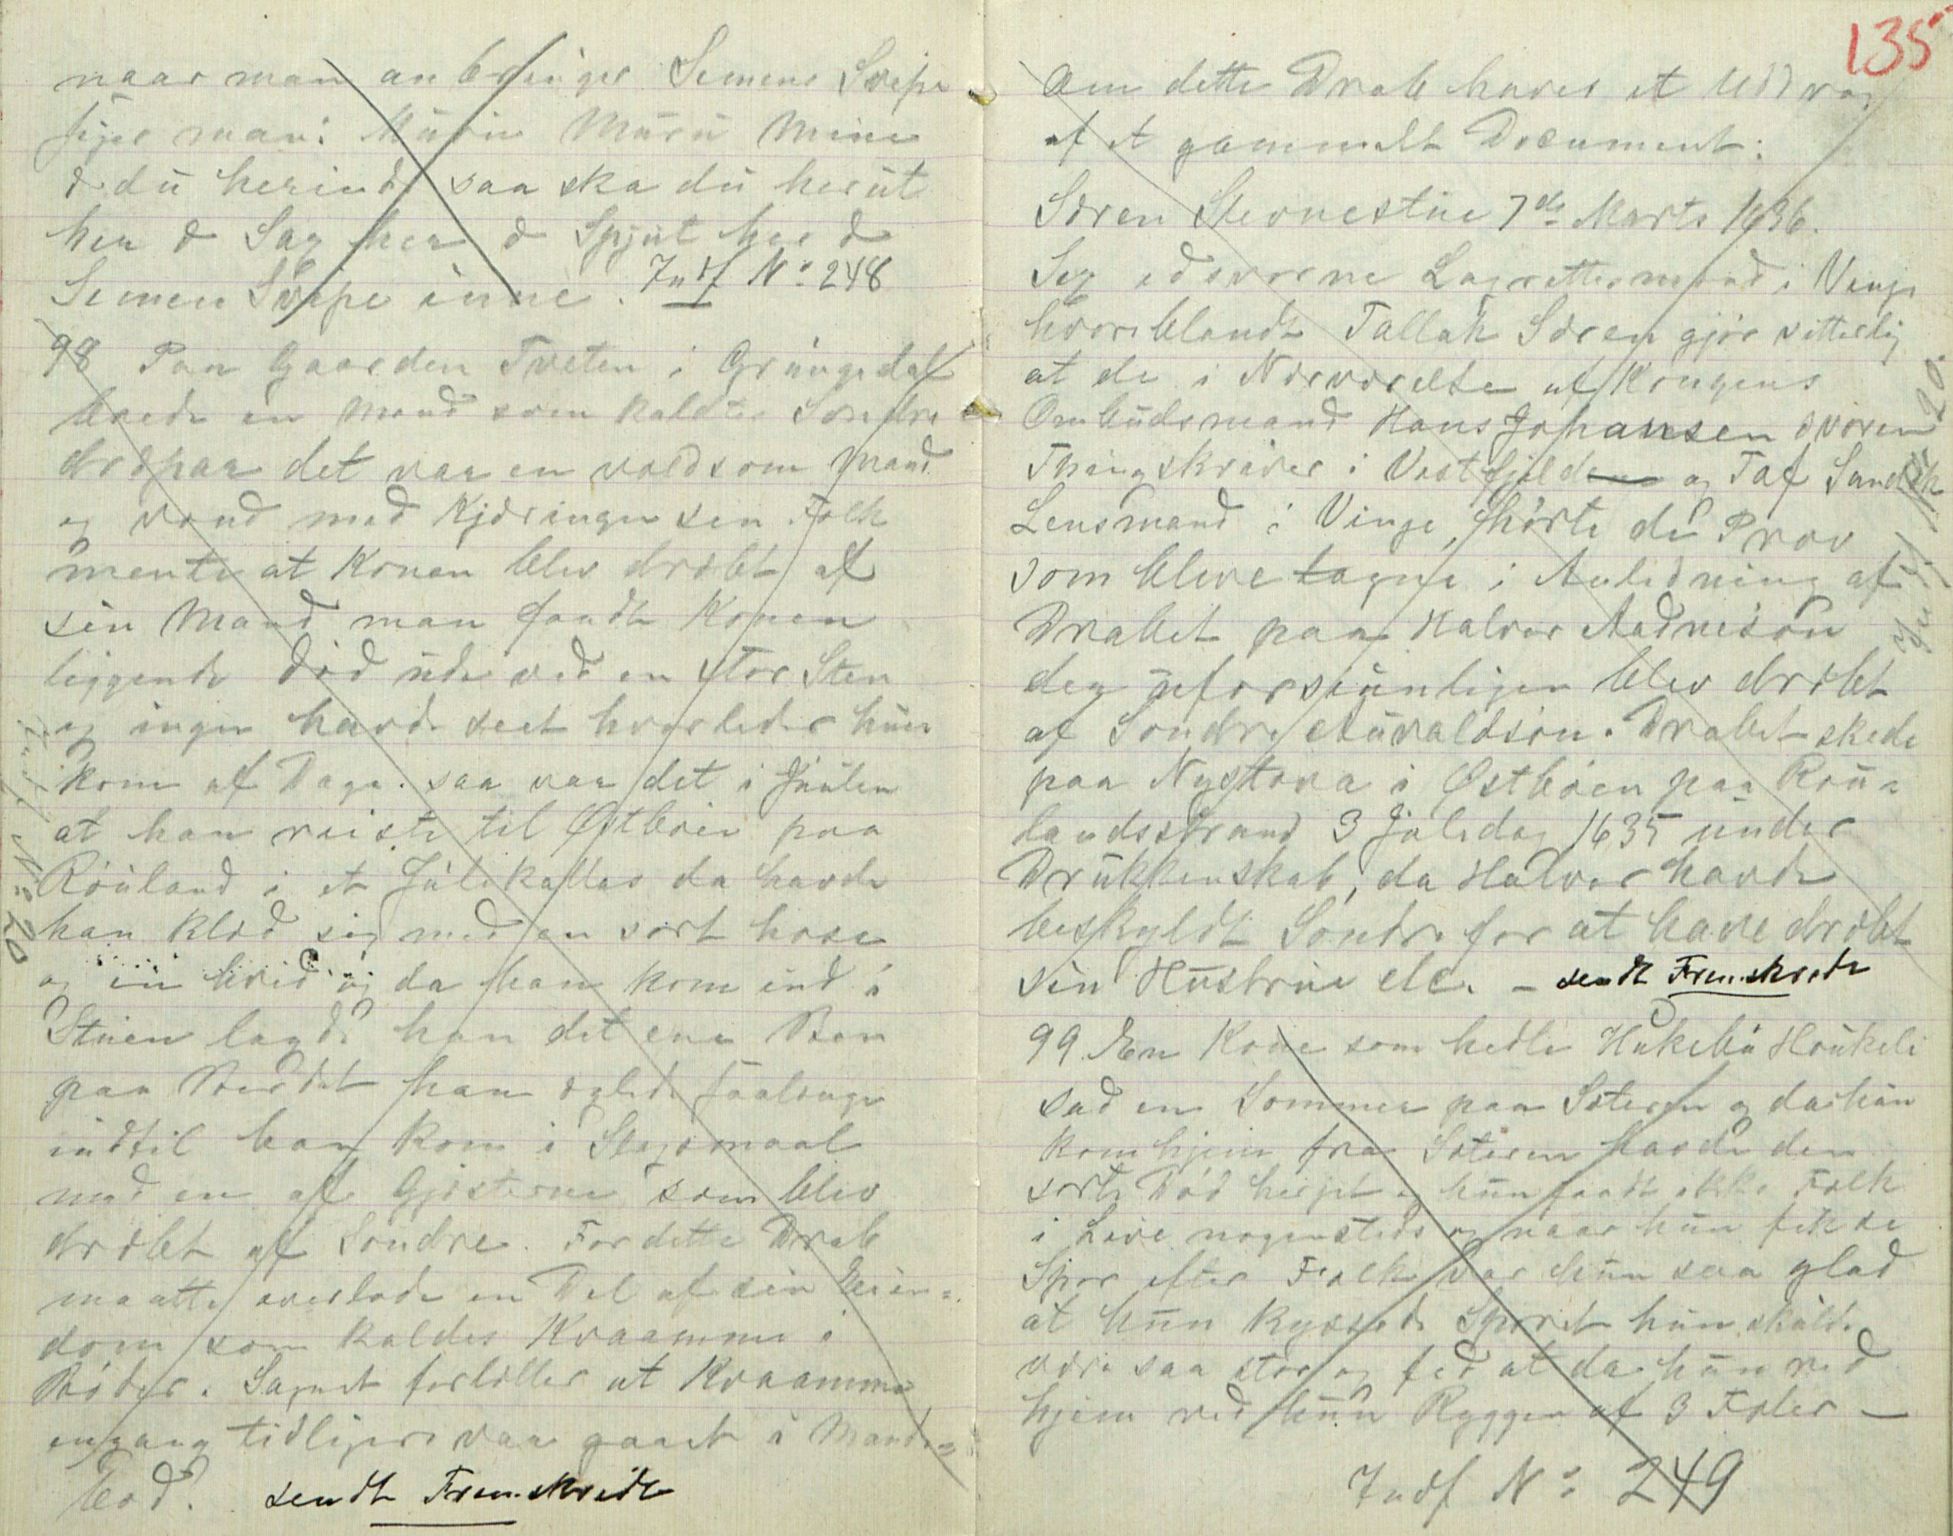 naar man anbringer Simens Svepe
siger man: Murü Murü Mine
æ du herinde saa ska du herut
her æ Sag her æ Spjut her æ
Simen Svipe inne. Indf N: 248
98 Paa Gaarden Tveten i Grungedal
boede en Mand som kaldtes Sondre
det var en voldsom Mand
og vond med Kjæringen sin Folk
mente at Konen blev dræbt af
sin Mand man fandt Konen
liggende död ude ved en stor Sten
og ingen havde seet hvorledes hun
kom af Dage. saa var det i Julen
at han reiste til Østböen paa
Röuland i et Julekallas da havde
han klæd sig med en sort hose
og en hvid og da han kom ind i
Stuen lagde han det ene Ben
paa Bordet han saalænge
indtil han kom i Slagsmaal
med en af Gjæsterne som blev
dræbt af Söndre. For dette Drab
maatte overlade en Del af sin Eien=
dom som kaldes Kvaamme i
Böder. Sagnet fortæller at Kvaamme
engang tidligere var gaaet i Mande=
bod. sendt Fremskridt
Indf N: 20
135
Om dette Drab haves et Uddrag
af et gammelt Document:
Særen Stevnestue 7de Marts 1636.
Sex edsvorne Lagrettesmænd i Vinje
hvoriblandt Tallak Særen gjör vitterlig
at de i Nærværelse af Kongens
Ombudsmand Hans Johansen svoren
Thingskriver i Vestfjeld og Taf Sandok
Lensmand i Vinje, hörte de Prov
som bleve tagne i Anledning af
Drabet paa Halvor Aadneson
der uforsiunligen blev dræbt
af Söndre Auvaldson. Drabet skede
paa Nystova i Østböen paa Röu=
landsstrand 3 Juledag 1635 under
Drukkenskab, da Halvor havde
beskyldt Söndre for at have dræbt
sin Hustrue etc. – sendt Fremskridt
Indf N: 20.
99. En Kone som hedte Hukebü Houkeli
sad en Sommer paa Sæteren og da hun
kom hjem fra Sæteren havde den
sorte Död herjet og hun fandt ikke Folk
i Live nogensteds og naar hun fik se
Spor efter Folk var hun saa glad
at hun kyssede Sporet hun skulde
være saa stor og fed at da hun red
hjem red hun Ryggen af 3 Foler –
Indf N: 249